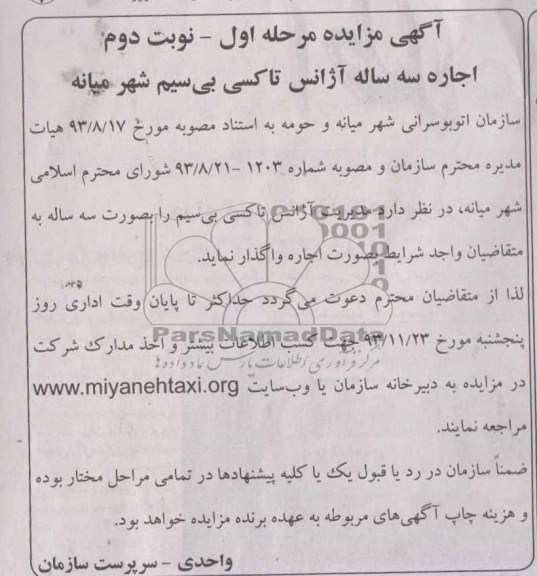 آگهی مزایده مرحله اول - نوبت دوم
اجاره سه ساله آژانس تاکسی بی‌سیم شهر میانه
سازمان اتوبوسرانی شهر میانه و حومه به استناد مصوبه مورخ ۹۳/۸/۱۷ هیات
مدیره محترم سازمان و مصوبه شماره ۱۲۰۳ -۹۳/۸/۲۱ شورای محترم اسلامی
شهر میانه، در نظر دارد مدیریت آژانس تاکسی بی‌سیم را بصورت سه ساله به
متقاضیان واجد شرایط بصورت اجاره واگذار نماید.
لذا از متقاضیان محترم دعوت می‌گردد حداکثر تا پایان وقت اداری روز
پنجشنبه مورخ ۹۳/۱۱/۲۳ جهت کسب اطلاعات بیشتر و اخذ مدارک شرکت
ParsNamadData
مرکز فرآوری اطلاعات پارس نماد داده‌ها
در مزایده به دبیرخانه سازمان یا وب‌سایت www.miyanehtaxi.org
مراجعه نمایند.
ضمناً سازمان در رد یا قبول یک یا کلیه پیشنهادها در تمامی مراحل مختار بوده
و هزینه چاپ آگهی‌های مربوطه به عهده برنده مزایده خواهد بود.
واحدی - سرپرست سازمان